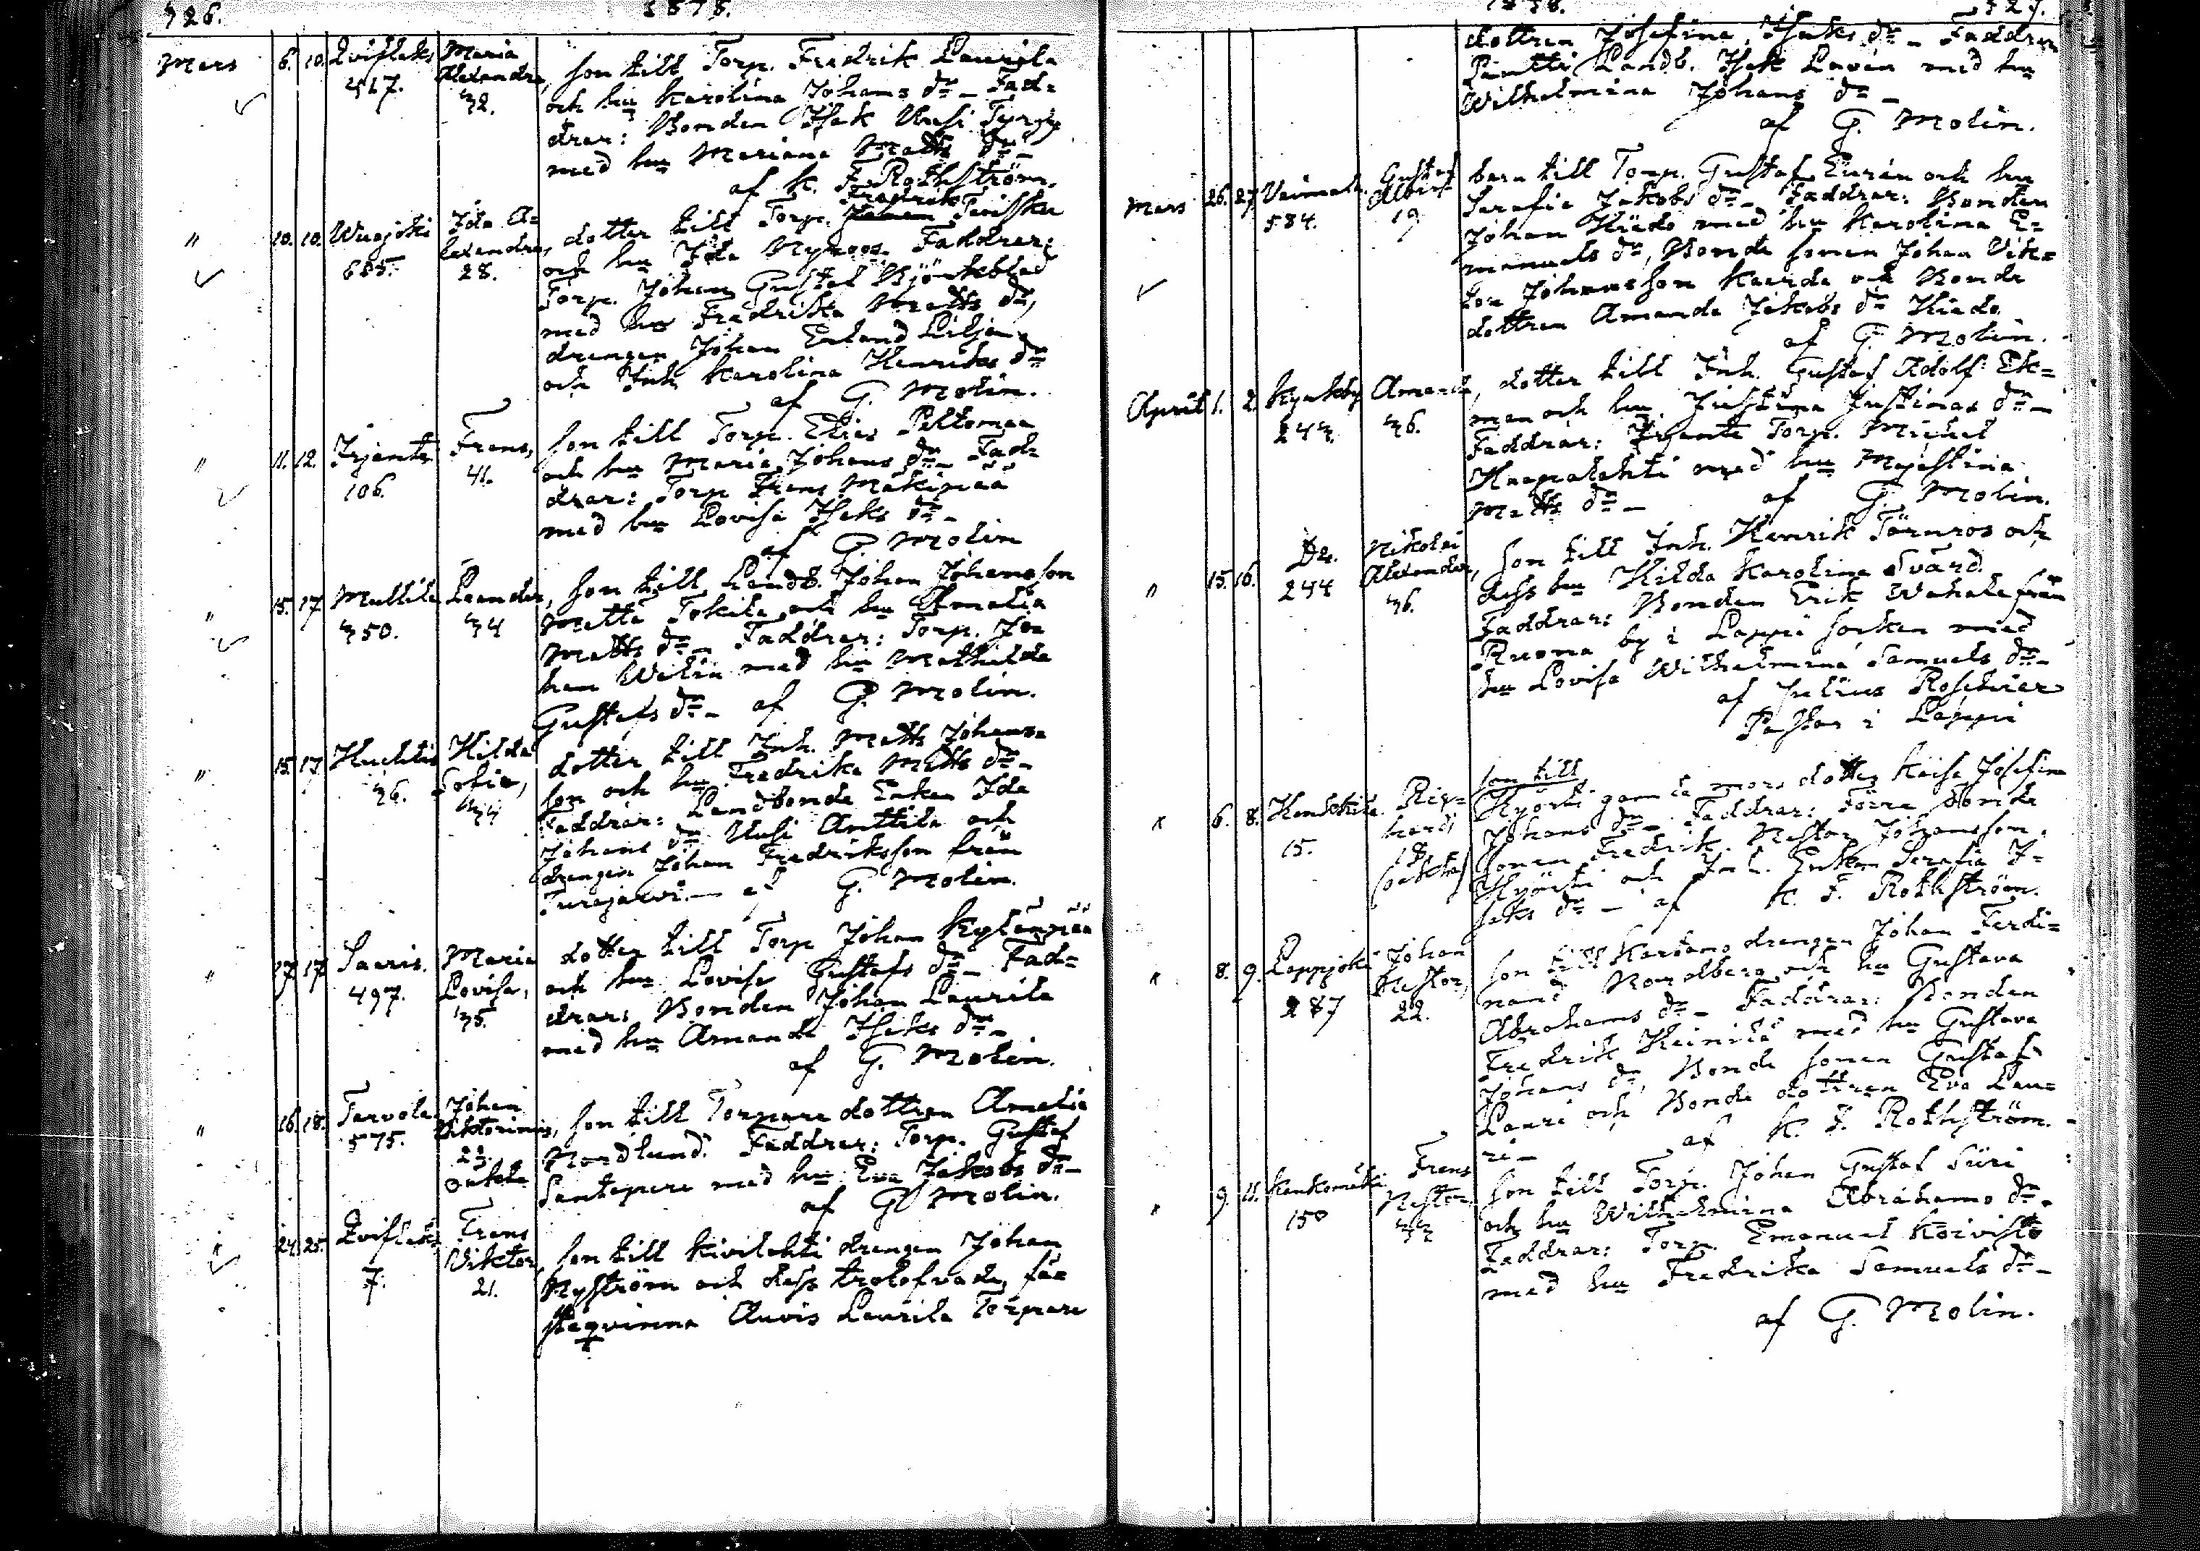 326.
1878.
Mars
6. 10. Qvifslaks
517.
Maria
Alexandra,
32.
son till Torp. Fredrik Laurila
och hu Karolina Johans dr _ Fad-
drar: Bonden Isak Uusi
med hu Mariana Matts dr _
af K. F. Rothström.
" 10. 10. Wuojoki
685.
Ida A-
lexandra,
28.
Fredrik
dotter till Torp.
och hu Ida Nyroos. Faddrar:
Torp. Johan Gustaf Björkblad
med hu Fredrika Matts dr,
drengen Johan Erland Lilja
och Inh. Karolina Henriks dr
af G. Molin.
" 11. 12. Irjante
106.
Frans,
41.
son till Torp. Elias Peltomaa
och hu Maria Johans dr _ Fad-
drar: Torp Frans Mäkipää
med hu Lovisa Isaks dr _
af G. Molin
" 15. 17. Mullila
350.
Leander,
34
son till Landb. Johan Johansson
Matts dr _ Faddrar: Torp. Jo-
han Welin med hu Mathilda
Gustafs dr _ af G. Molin.
" 15. 17. Huhtis
36.
Hilda
Sofia,
34
dotter till Inh. Matts Johans-
son och hu Fredrika Matts dr _
Faddrar: Landbonde Enkan Ida
Johans dr Uusi Anttila och
drengen Johan Fredriksson från
Turajärvi. — af G. Molin.
" 17. 17. Saaris.
497.
Maria
Lovisa,
35.
dotter till Torp Johan Kylänpää
och hu Lovisa Gustafs dr _ Fad-
drar: Bonden Johan Laurila
med hu Amanda Isaks dr _
af G. Molin.
" 16. 18. Tarvola
575.
Johan
Viktorinus,
23.
oäkta
son till Torpare dottren Amalia
Nordlund. Faddrar: Torp. Gustaf
Santapere med hu Eva Jakobs dr _
af G. Molin.
" 24. 25. Qvifslaks
7.
Frans
Viktor,
21.
son till Kivilahti drengen Johan
Nyström och dess trolofvade, fä-
steqvinna Auvis Laurila Torpare
1878.
327.
dottren Josefina Isaks dr _ Faddrar
Pänttö Landb. Isak Lavén med hu
Wilhelmina Johans dr _
af G. Molin.
Mars 26. 27.
584.
Gustaf
Albert
19
barn till Torp. Gustaf Eurén och hu
Serafia Jakobs dr _ Faddrar: Bonden
Johan Hiedo med hu Karolina E-
manuels dr, Bonde sonen Johan Vik-
tor Johansson Kaurda och Bonde
dottren Amanda Jakobs dr Hiedo
af G. Molin.
April 1. 2. Kyrkoby
243.
Amanda,
36.
dotter till Inh. Gustaf Adolf Ek-
man och hu Justina Justinas dr _
Faddrar: Irjante Torp. Mickel
Haapalehti med hu Majastina
Matts dr _ af G. Molin.
" 15. 16. Do.
244
Nikolai
Alexander,
36.
son till Inh. Henrik Törnroos och
dess hu Hilda Karolina Svärd.
Faddrar: Bonden Erik Wahala från
Ruona by i Lappi socken med
hu Lovisa Wilhelmina Samuels dr _
af Julius Roschier
Pastor i Lappi
" 6. 8.
15.
Rik-
hard,
18
(oäkta)
son till
Hyörti gamla mors dotter Kaisa Josefina
Johans dr _ Faddrar: Förra Bonde
sonen Fredrik Nestor Johansson
Hyörti och Inh. Enkan Serafia I-
saks dr _ af K. F. Rothström.
" 8. 9. Lappjoki
287
Johan
Nestor,
22.
son till Kartano drengen Johan Ferdi-
nand Nordberg och hu Gustava
Abrahams dr _ Faddrar: Bonden
Fredrik Heinilä med hu Gustava
Johans dr, Bonde sonen Gustaf
Lauri och Bonde dottren Eva Lau-
ri _ af K. F. Rothström.
" 9. 11. Kaukomäki
150
Frans
Nestor
33
son till Torp. Johan Gustaf Süri
och hu Wilhelmina Abrahams dr _
Faddrar: Torp. Emanuel Koivisto
med hu Fredrika Samuels dr _
af G. Molin.